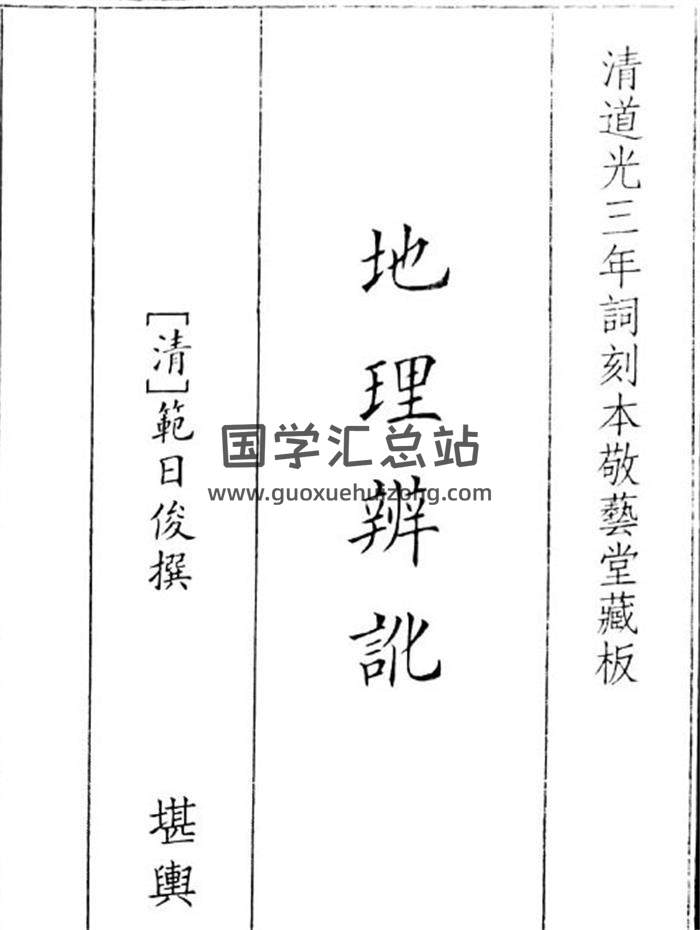 清道光三年詞刻本敬藝堂藏板
地理辨訛
[清]範日俊撰
堪輿
国学汇总站
www.guoxuehuizong.com